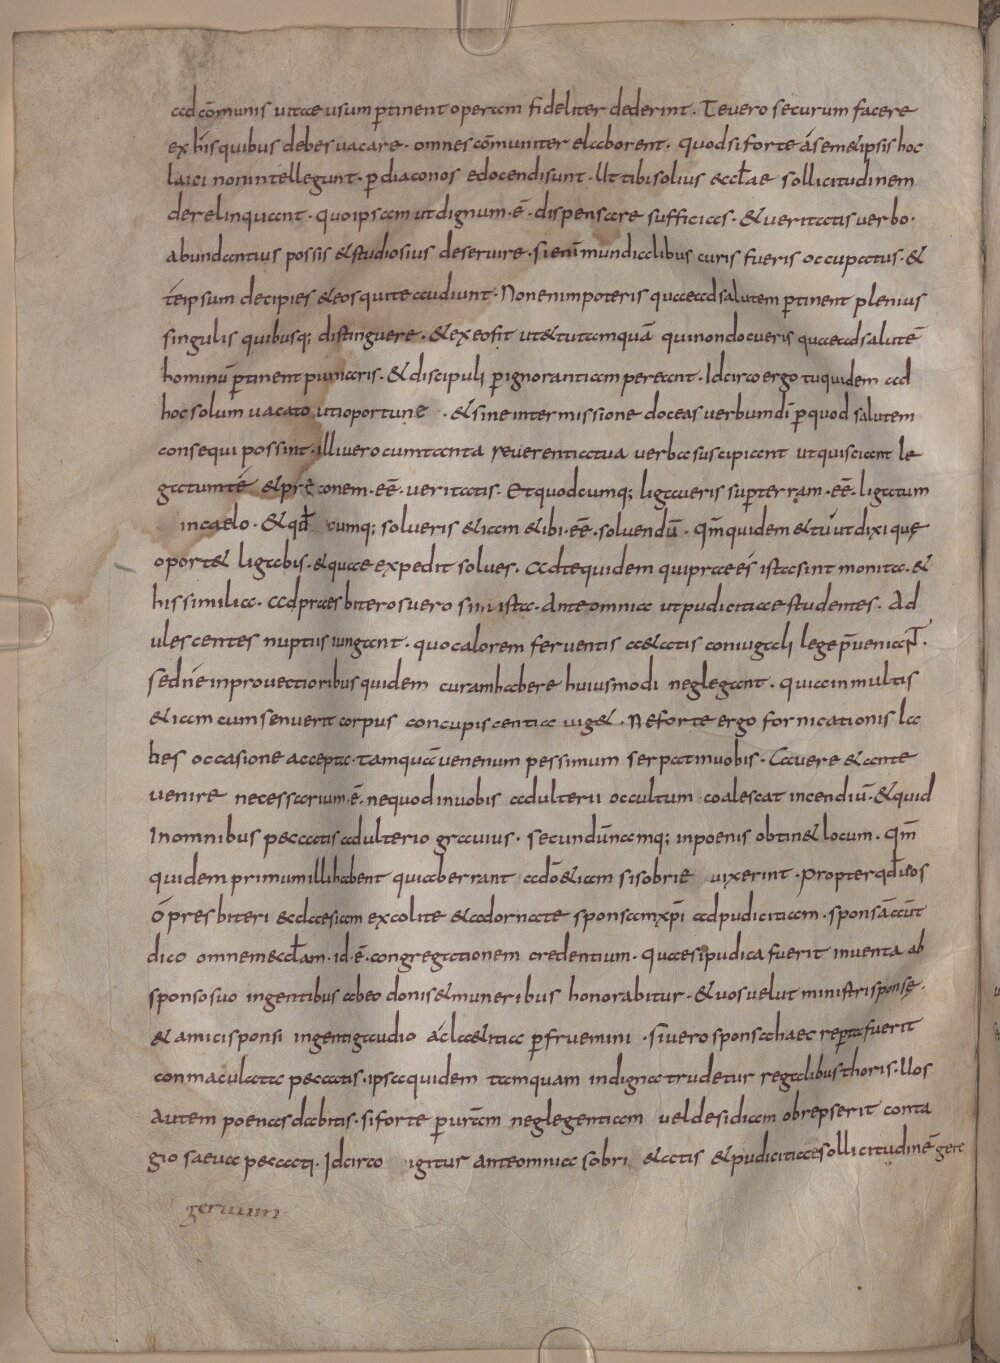 ad cōmunis uitae usum ptinent operam fideliter dederint. Te uero securum facere
ex his quibus debes uacare. omnes cōmuniter elaborent. quod si forte a semetipsis hoc
laici non intellegunt. p diaconos edocendi sunt. Ut tibi solius eccłae sollicitudinem
derelinquant. quo ipsam ut dignum .ē. dispensare sufficias. & ueritatis uerbo.
abundantius possis & studiosius deseruire. si enī mundialibus curis fueris occupatus. &
te ipsum decipies & eos qui te audiunt. Non enim poteris quae ad salutem ptinent plenius
singulis quibusq; distinguere. & ex eo fit ut & tu tamquā qui non docueris quae ad salutē
hominū ptinent puniaris. & discipuli p ignorantiam pereant. Idcirco ergo tu quidem ad
hoc solum uacato uti oportune . & sine intermissione doceas uerbum dī p quod salutem
consequi possint. illi uero cum tanta reuerentia tua uerba suscipiant ut qui sciant le
gatum te & preconem .eē. ueritatis. Et quodcumq; ligaueris sup terram .eē. ligatum
in caelo. & qđ cumq; solueris & iam & ibi .eē. soluendū. Qm̄ quidem & tu ut dixi que
oport& ligabis. & quae expedit solues. Ad te quidem qui praees ista sint monita. &
his similia. Ad praesbiteros uero sint ista. Ante omnia ut pudicitiae studentes. Ad
ulescentes nuptiis iungant. quo calorem feruentis ae&atis coniugali lege p̄ueniant.
sed ne in prouectioribus quidem curam habere huiusmodi neglegant. quia in multis
& iam cum senuerit corpus concupiscentia uig&. Ne forte ergo fornicationis la
bes occasione accepta. tamquā uenenum pessimum serpat in uobis. Cauere & ante
uenire necessarium .ē. ne quod in uobis adulterii occultum coalescat incendiū. & quid
In omnibus peccatis adulterio grauius. secundū namq; in poenis obtin& locum. qm̄
quidem primum illi habent qui aberrant a dō & iam si sobrie uixerint. propter qđ eos
O presbiteri ecclaesiam excolite & adornate sponsam xp̄i ad pudicitiam. sponsā aūt
dico omnem eccłam. id .ē. congregationem credentium. Quae si pudica fuerit inuenta ab
sponso suo ingentibus ab eo donis & muneribus honorabitur. & uos uelut ministri sponse.
& amici sponsi ingenti gaudio ac la&itia pfruemini. si uero sponsa haec repta fuerit
conmaculata peccatis. ipsa quidem tamquam indigna trudetur regalibus thoris. Uos
autem poenas dabitis. si forte p uram neglegentiam uel desidiam obrepserit conta
gio saeua peccati. Idcirco igitur ante omnia sobri &atis & pudicitiae sollicitudinē gere